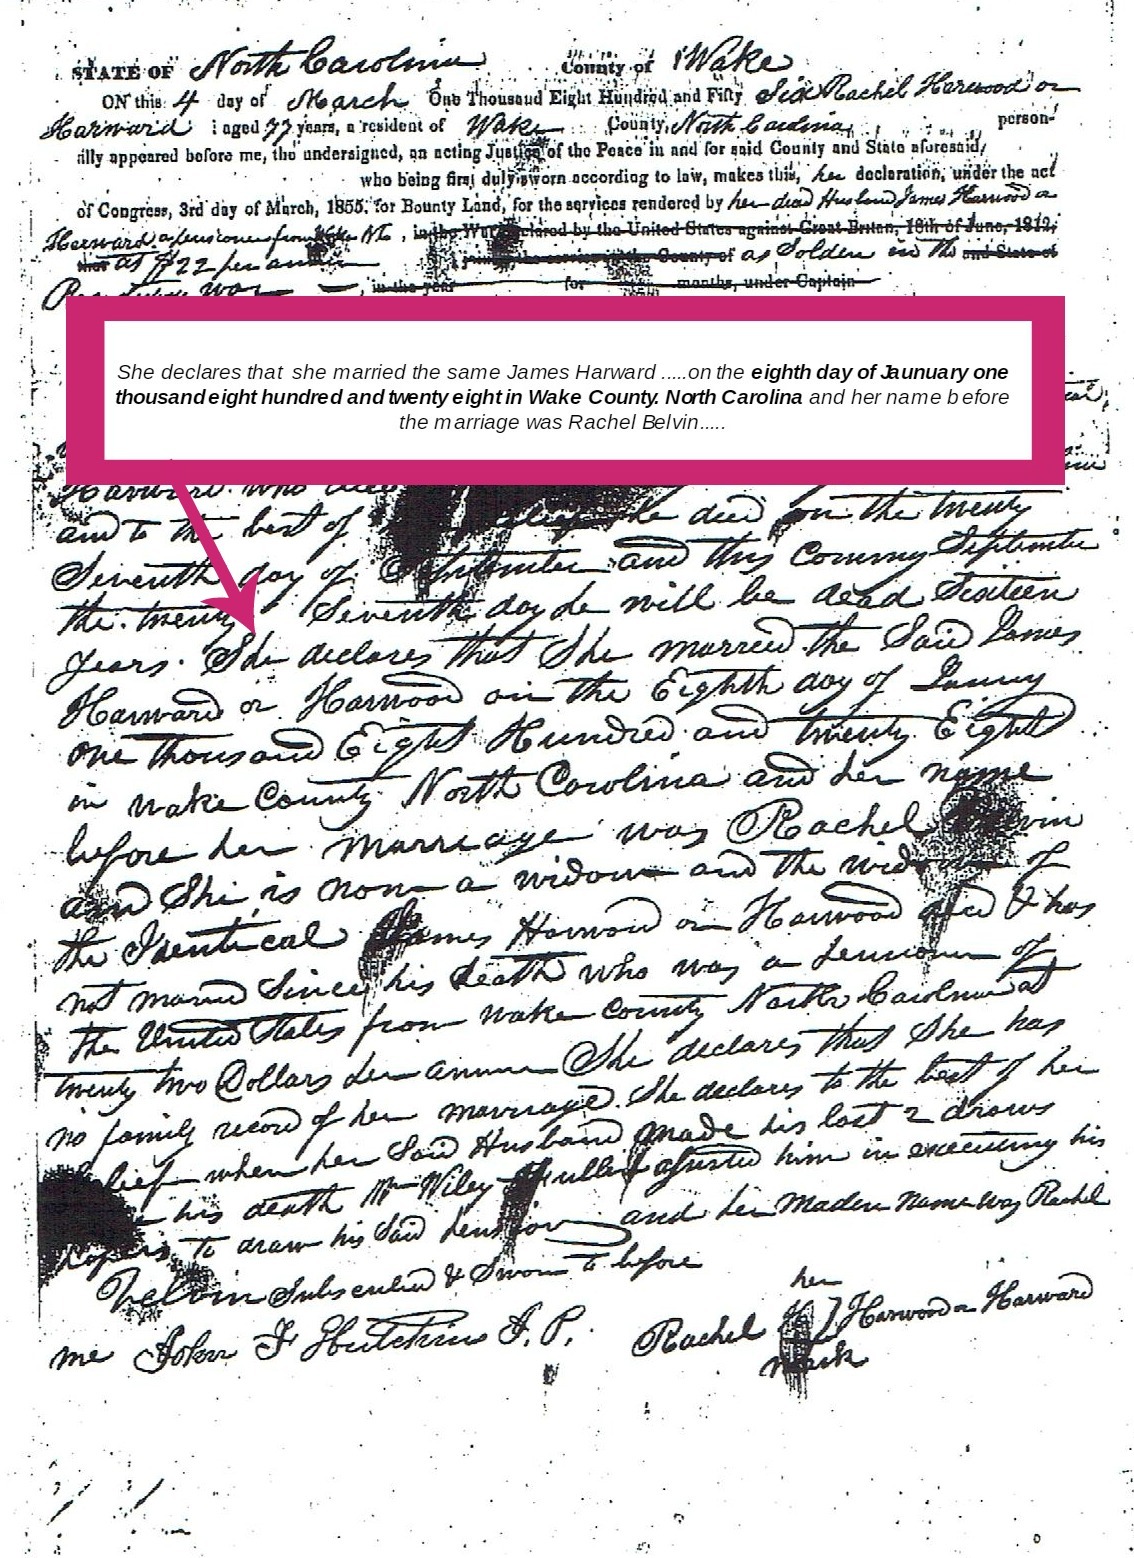 STATE OF North Carolina County of Wake
ON this 4 day of March One Thousand Eight Hundred and Fifty Six Rachel Harwood or
Harward aged 77 years, a resident of Wake County, North Carolina, person-
ally appeared before me, the undersigned, an acting Justice of the Peace in and for said County and State aforesaid,
who being first duly sworn according to law, makes this, her declaration, under the act
of Congress, 3rd day of March, 1855, for Bounty Land, for the services rendered by her dead Husband James Harwood or
Harward a pensioner from Wake NC, in the War declared by the United States against Great Britan, 18th of June, 1812,
that at $22 per annum joined the service in the County of as Solder in the and State of
War in the year for months, under Captain
She declares that she married the same James Harward .....on the eighth day of Jaunuary one
thousand eight hundred and twenty eight in Wake County. North Carolina and her name before
the marriage was Rachel Belvin.....
Harward who
and to the best of he died on the twenty
Seventh day of September and this Comming September
the twenty Seventh day he will be dead Sixteen
years. She declares that She married the Said James
Harward or Harwood on the Eighth day of Janury
one thousand Eight Hundred and twenty Eight
in wake County North Carolina and her name
before her marriage was Rachel Belvin
and She is now a widow and the widow of
the Identical James Harward or Harwood decd & has
not married Since his death who was a pensioner of
the United States from wake county North Carolina at
twenty two Dollars per annum She declares that She has
no family record of her marriage. She declares to the best of her
belief when her Said Husband made his last 2 draws
his death Mr Wiley assisted him in executing his
papers to draw his Said pension and her Maden Name was Rachel
Belvin Subscribed & Sworn to before
me John F Hutchins J. P.
her
Rachel Harwood or Harward
mark